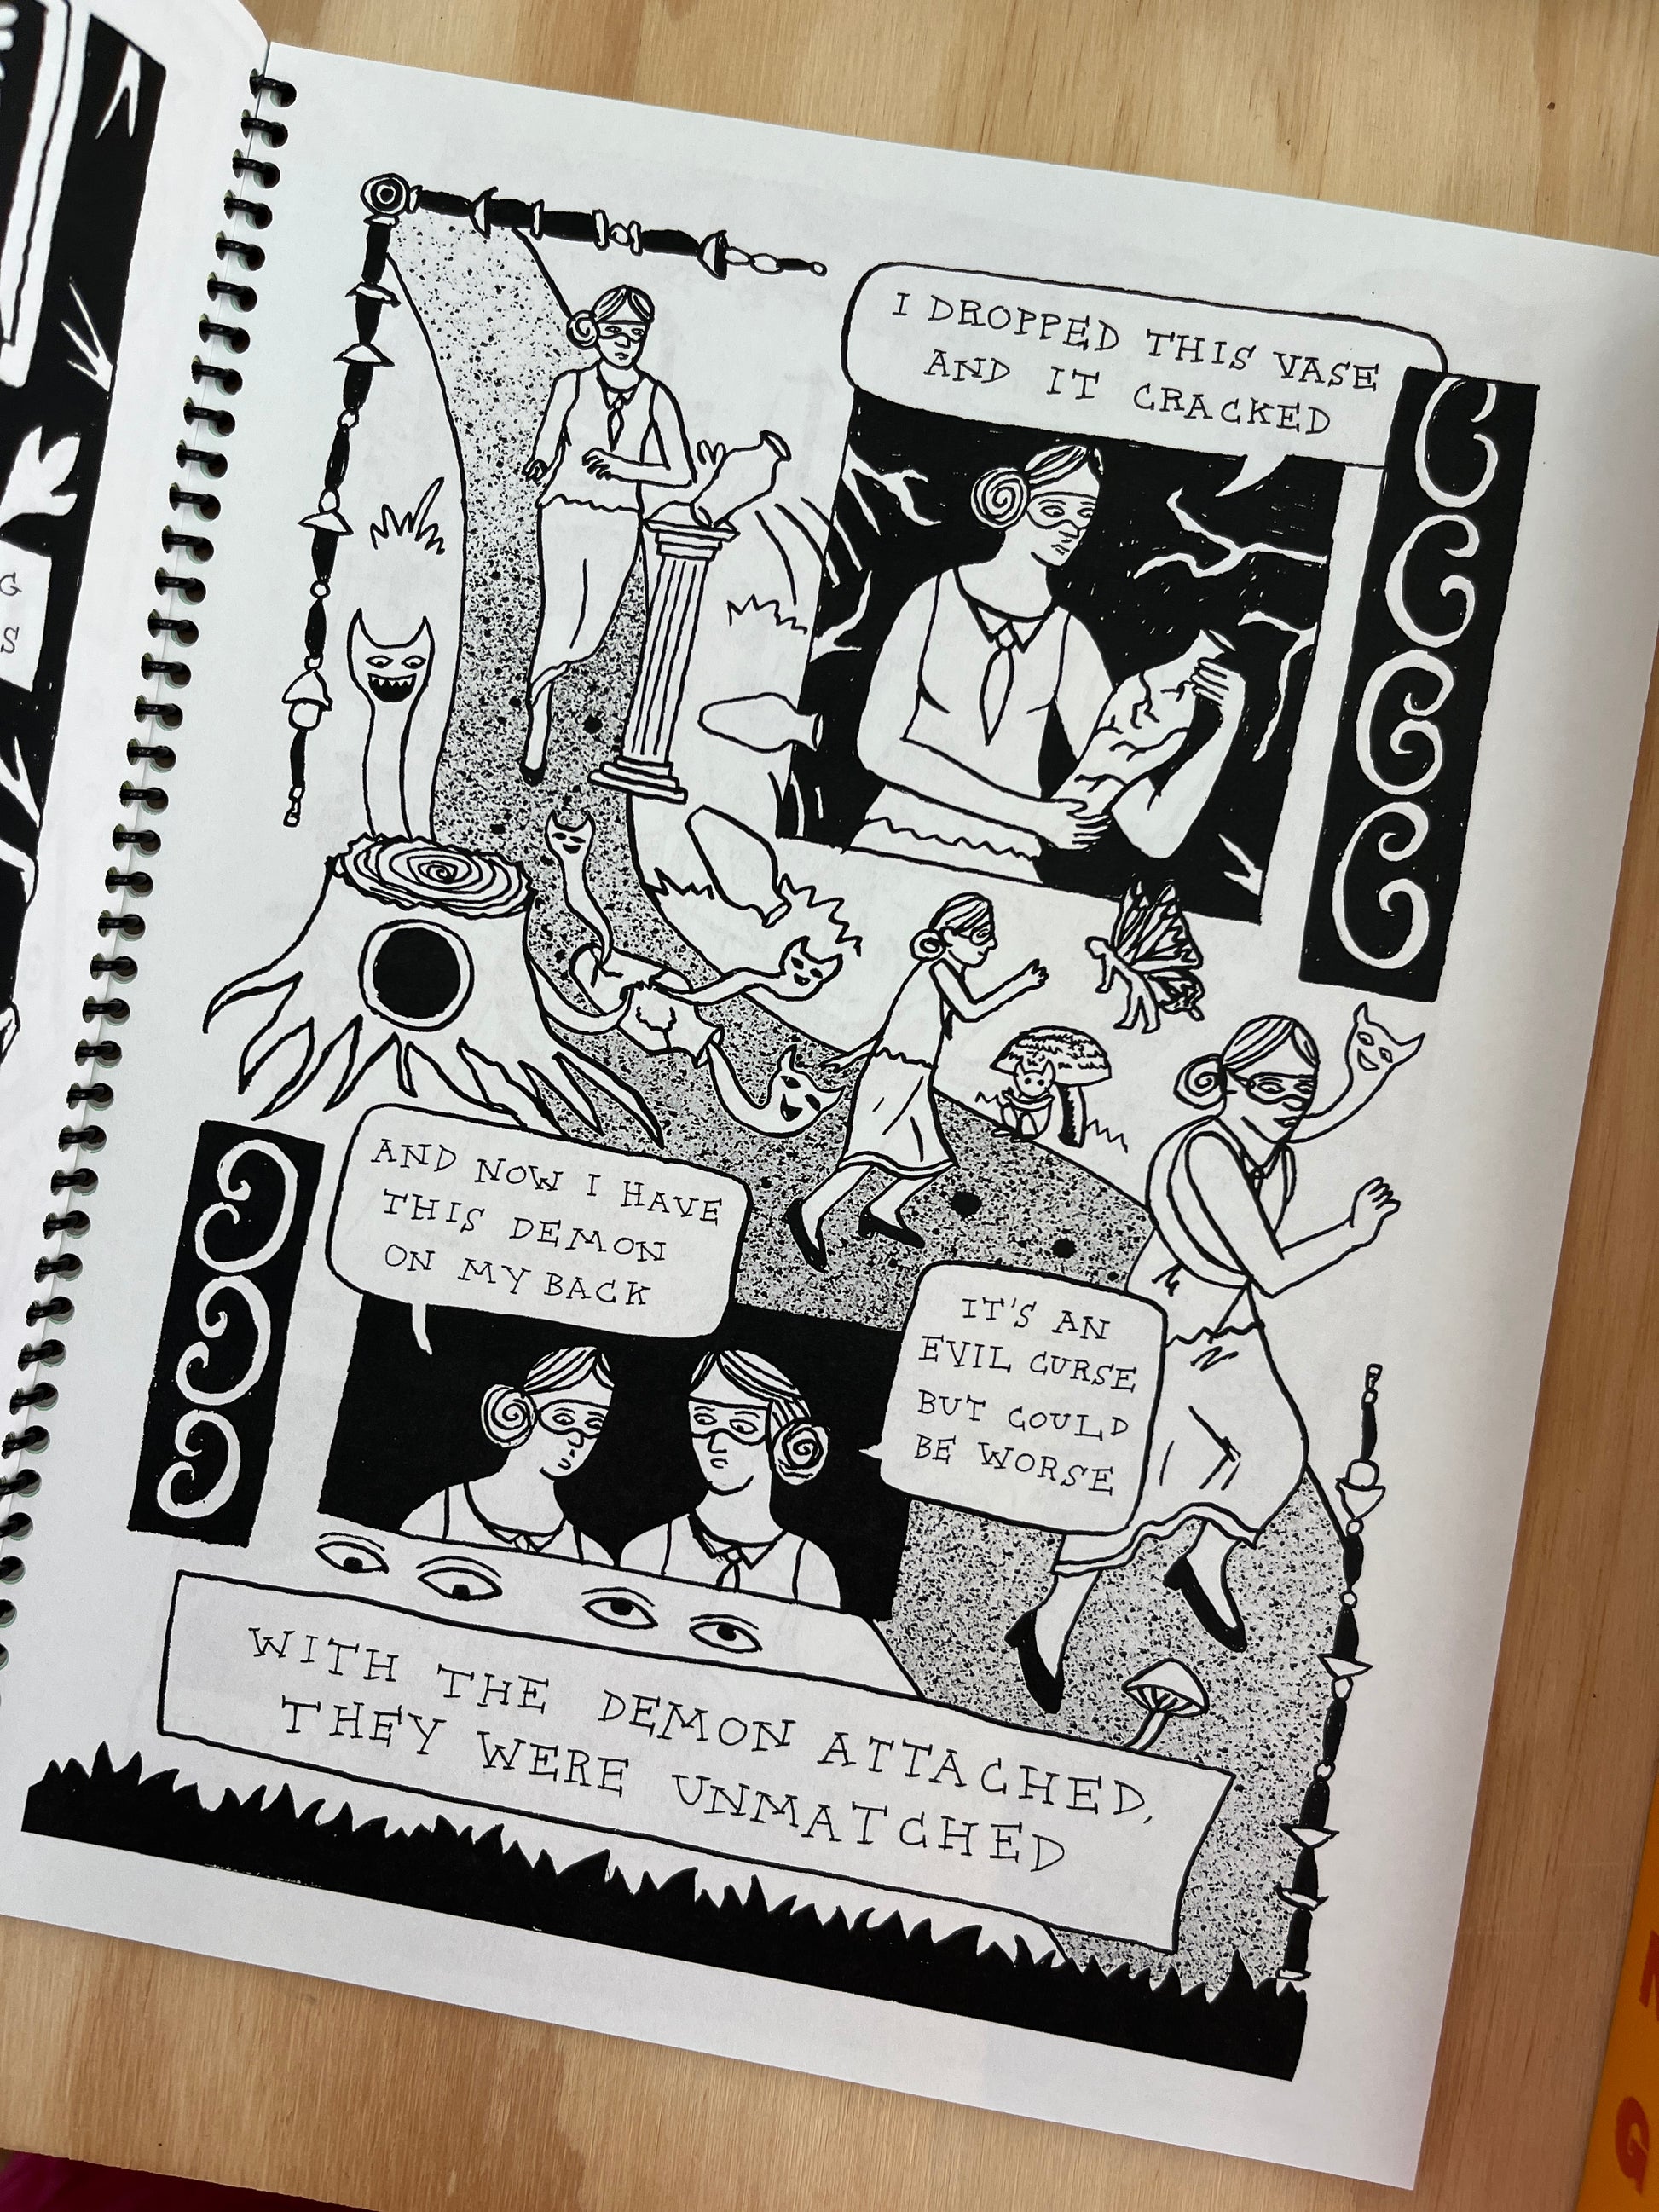 I DROPPED THIS VASE
AND IT CRACKED
AND NOW I HAVE
THIS DEMON
ON MY BACK
IT'S AN
EVIL CURSE
BUT COULD
BE WORSE
WITH THE DEMON ATTACHED,
THEY WERE UNMATCHED
G
S
G